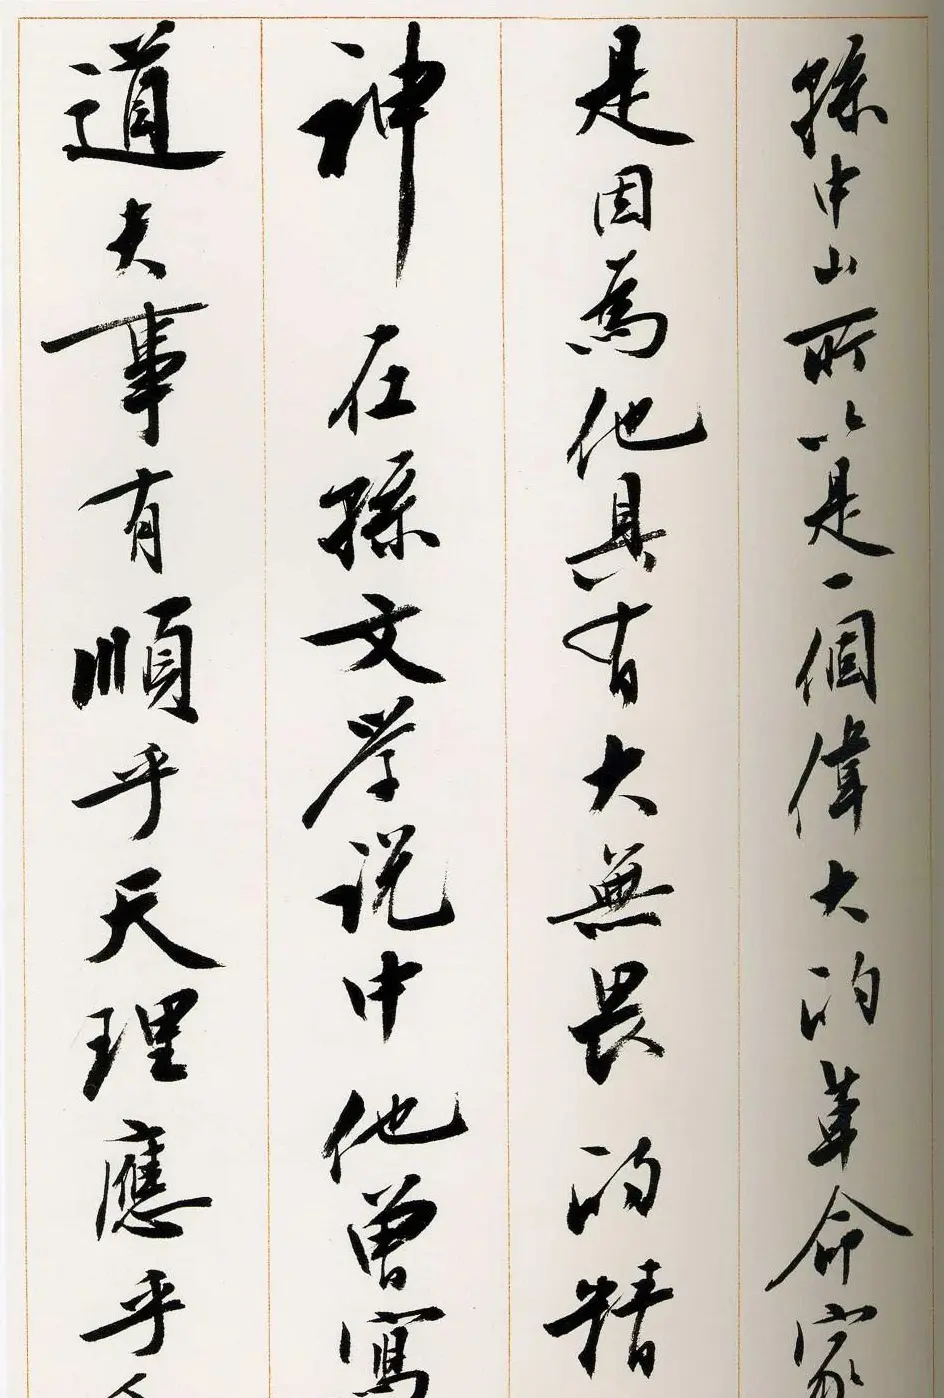 孫中山所以是一個偉大的革命家
是因為他具有大無畏的精
神在孫文學说中他曾寫
道夫事有順乎天理應乎